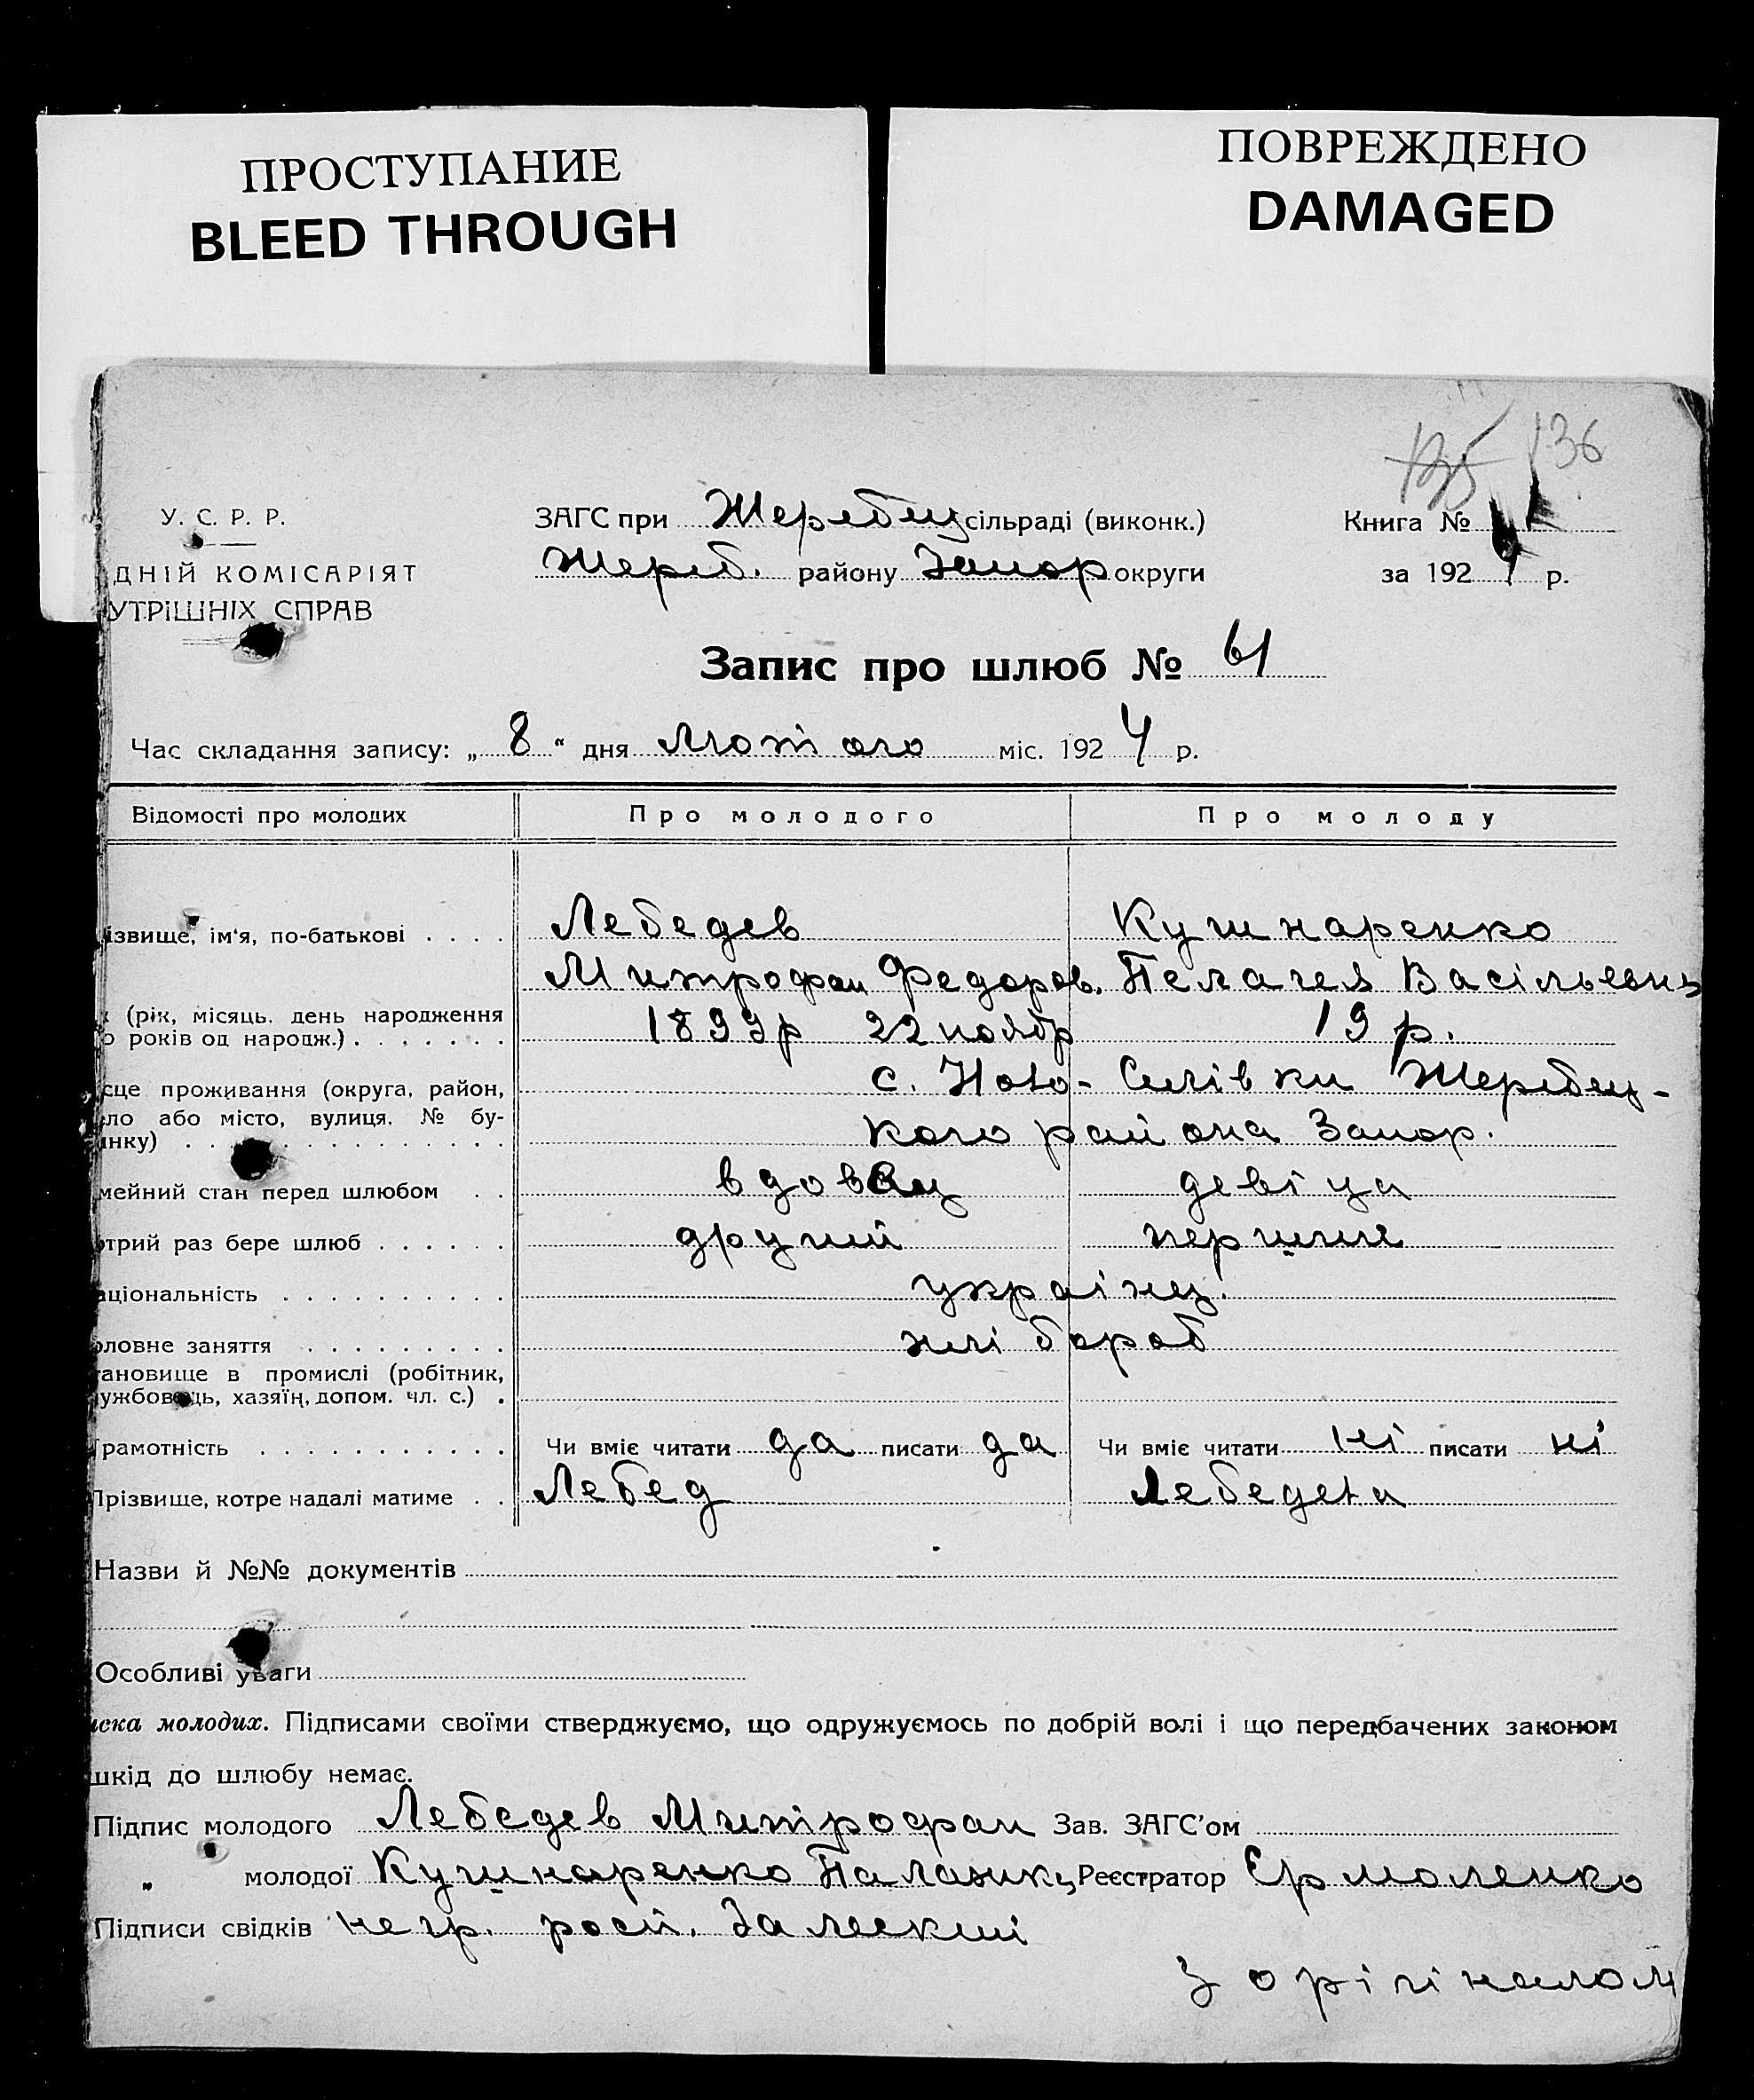 ПРОСТУПАНИЕ
BLEED THROUGH
ПОВРЕЖДЕНО
DAMAGED
135 136
У. С. Р. Р.
ДНІЙ КОМІСАРІЯТ
УТРІШНІХ СПРАВ
ЗАГС при Жеребец сільраді (виконк.)
Жереб. району Запор округи
Книга №
за 192 р.
Запис про шлюб № 61
Час складання запису: „ 8 “ дня лютого міс. 1924 р.
Відомості про молодих Про молодого Про молоду
ізвище, ім'я, по-батькові . . . . Лебедев Кушнаренко
Митрофан Федоров. Пелагея Васільевна
(рік, місяць. день народження
о років од народж.) . . . . . . . 1899р 22 ноябр 19 р.
сце проживання (округа, район, с. Ново-Селівки Жеребец-
ло або місто, вулиця. № бу-
инку) . . . . . . . . . . . . . . кого района Запор.
мейний стан перед шлюбом . . вдовец девіца
отрий раз бере шлюб . . . . . . другий перший
аціональність . . . . . . . . . . украінец.
оловне заняття . . . . . . . . . хлібороб
тановище в промислі (робітник,
ужбовець, хазяїн, допом. чл. с.) .
рамотність . . . . . . . . . . . Чи вміє читати да писати да Чи вміє читати ні писати ні
Прізвище, котре надалі матиме . . Лебед Лебедева
Назви й №№ документів
Особливі уваги
иска молодих. Підписами своїми стверджуємо, що одружуємось по добрій волі і що передбачених законом
шкід до шлюбу немає.
Підпис молодого Лебедев Митрофан Зав. ЗАГС'ом
„ молодої Кушнаренко Реєстратор Єрмоленко
Підписи свідків негр. росп.
З орігіналом